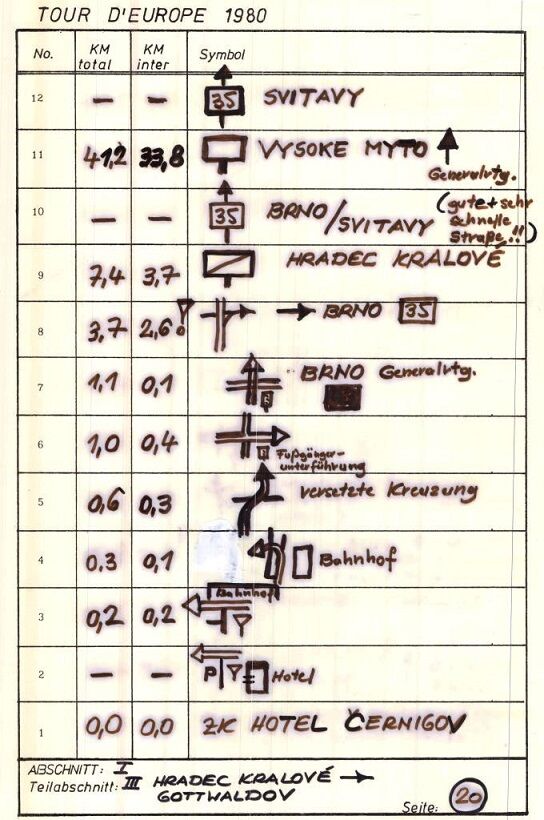 TOUR D'EUROPE 1980
No. KM total KM inter Symbol
12 — — 35 SVITAVY
11 41,2 33,8 VYSOKE MYTO
Generalrtg.
10 — — 35 BRNO/SVITAVY (gute + sehr
schnelle
Straße!!)
9 7,4 3,7 HRADEC KRALOVÉ
8 3,7 2,6 BRNO 35
7 1,1 0,1 BRNO Generalrtg.
6 1,0 0,4
Fußgänger-
unterführung
5 0,6 0,3 versetzte Kreuzung
4 0,3 0,1 Bahnhof
3 0,2 0,2 Bahnhof
2 — — P Hotel
1 0,0 0,0 ZK HOTEL ČERNIGOV
ABSCHNITT: I
Teilabschnitt: III HRADEC KRALOVÉ →
GOTTWALDOV
Seite: 20